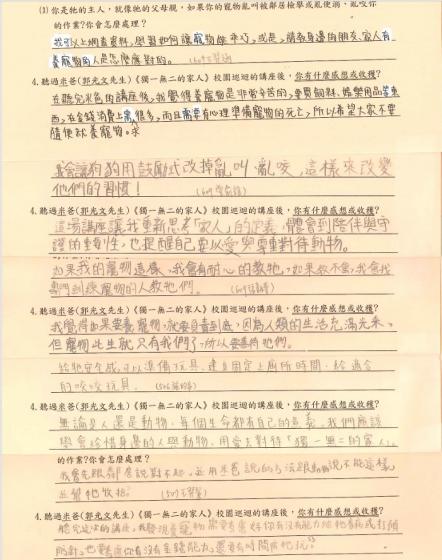 (1) 你是牠的主人,就像牠的父母親,如果你的寵物亂叫被鄰居檢舉或亂便溺,亂咬你
的作業?你會怎麼處理?
我可以上網查資料,學習如何讓寵物
養寵物的人是怎麼應對的。
4. 聽過米爸(郭光文先生)《獨一無二的家人》校園巡迴的講座後,你有什麼感想或收穫?
在聽完米爸的講座後,我覺得養寵物是非常辛苦的,要買飼料、娛樂用品等東
西,在金錢消費上需很多,而且需要有心理準備寵物的死亡,所以希望大家不要
隨便就養寵物。
我會讓狗狗用鼓勵式改掉亂叫、亂咬,這樣來改變
他們的習慣!
4. 聽過米爸(郭光文先生)《獨一無二的家人》校園巡迴的講座後,你有什麼感想或收穫?
這場講座讓我重新思考「家人」的定義,體會到陪伴與守
護的重要性,也提醒自己要以愛與尊重對待動物。
如果我的寵物這樣,我會有耐心的教牠,如果教不會,我會找
專門訓練寵物的人教牠們。
4. 聽過米爸(郭光文先生)《獨一無二的家人》校園巡迴的講座後,你有什麼感想或收穫?
我覺得如果要養寵物,就要負責到底,因為人類的生活充滿光采,
但寵物此生就只有我們了,所以要善待牠們。
給牠安全感,可以準備玩具,建立固定上廁所時間,給適合
的咬咬玩具。
4. 聽過米爸(郭光文先生)《獨一無二的家人》校園巡迴的講座後,你有什麼感想或收穫?
無論是人還是動物,每個生命都有自己的意義。我們應該
學會珍惜身邊的人與動物,用愛去對待「獨一無二的家人」。
的作業?你會怎麼處理?
我會先跟鄰居說對不起,並用米爸說的方法跟動物說不能這樣,
並幫牠收拾。
4. 聽過米爸(郭光文先生)《獨一無二的家人》校園巡迴的講座後,你有什麼感想或收穫?
聽完這次的講座,我發現養寵物需要考慮好你有沒有能力給牠看病或打預
防針,也要考慮你有沒有金錢能力,還要有時間陪牠玩。